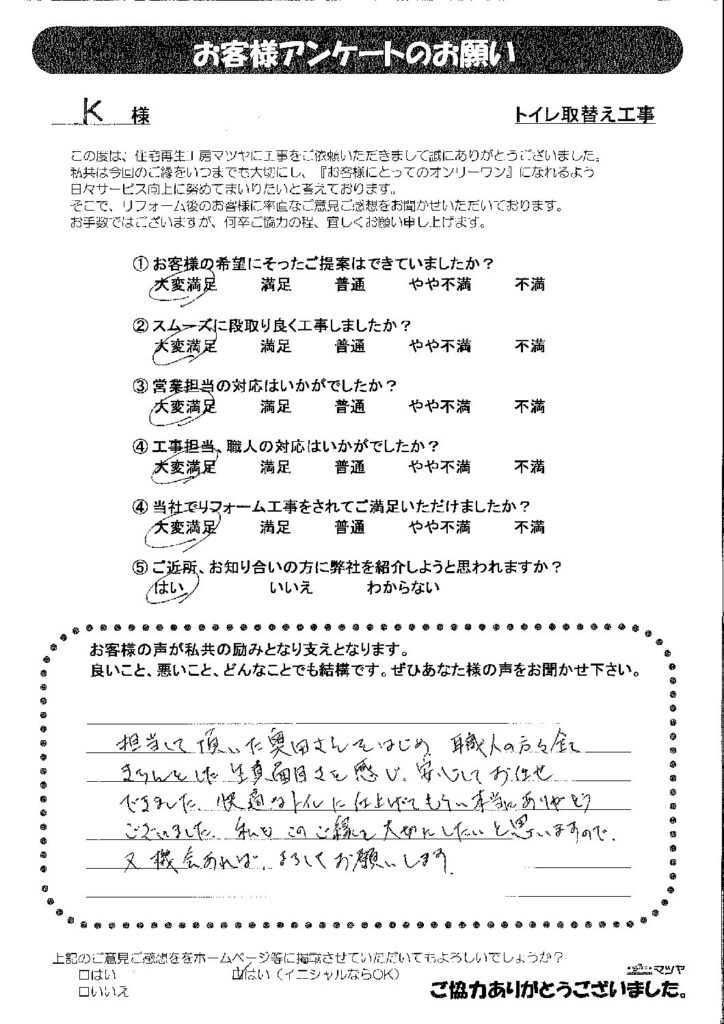 お客様アンケートのお願い
K 様
トイレ取替え工事
この度は、住宅再生工房マツヤに工事をご依頼いただきまして誠にありがとうございました。
私共は今回のご縁をいつまでも大切にし、『お客様にとってのオンリーワン』になれるよう
日々サービス向上に努めてまいりたいと考えております。
そこで、リフォーム後のお客様に率直なご意見ご感想をお聞かせいただいております。
お手数ではございますが、何卒ご協力の程、宜しくお願い申し上げます。
① お客様の希望にそったご提案はできていましたか？
大変満足 満足 普通 やや不満 不満
② スムーズに段取り良く工事しましたか？
大変満足 満足 普通 やや不満 不満
③ 営業担当の対応はいかがでしたか？
大変満足 満足 普通 やや不満 不満
④ 工事担当、職人の対応はいかがでしたか？
大変満足 満足 普通 やや不満 不満
④ 当社でリフォーム工事をされてご満足いただけましたか？
大変満足 満足 普通 やや不満 不満
⑤ ご近所、お知り合いの方に弊社を紹介しようと思われますか？
はい いいえ わからない
お客様の声が私共の励みとなり支えとなります。
良いこと、悪いこと、どんなことでも結構です。ぜひあなた様の声をお聞かせ下さい。
担当して頂いた奥田さんをはじめ、職人の方々全て
きちんとした生真面目さを感じ、安心してお任せ
できました。快適なトイレに仕上げてもらい本当にありがとう
ございました。私もこのご縁を大切にしたいと思いますので、
又機会あれば、よろしくお願いします。
上記のご意見ご感想ををホームページ等に掲載させていただいてもよろしいでしょうか？
□はい ☑はい（イニシャルならOK）
□いいえ
マツヤ
ご協力ありがとうございました。